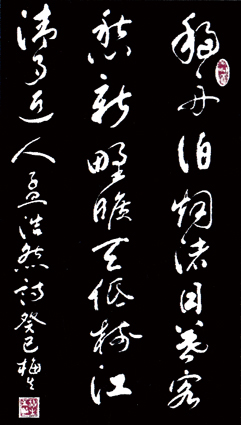 移舟泊烟渚日暮客
愁新野曠天低樹江
清月近人孟浩然詩癸巳梅